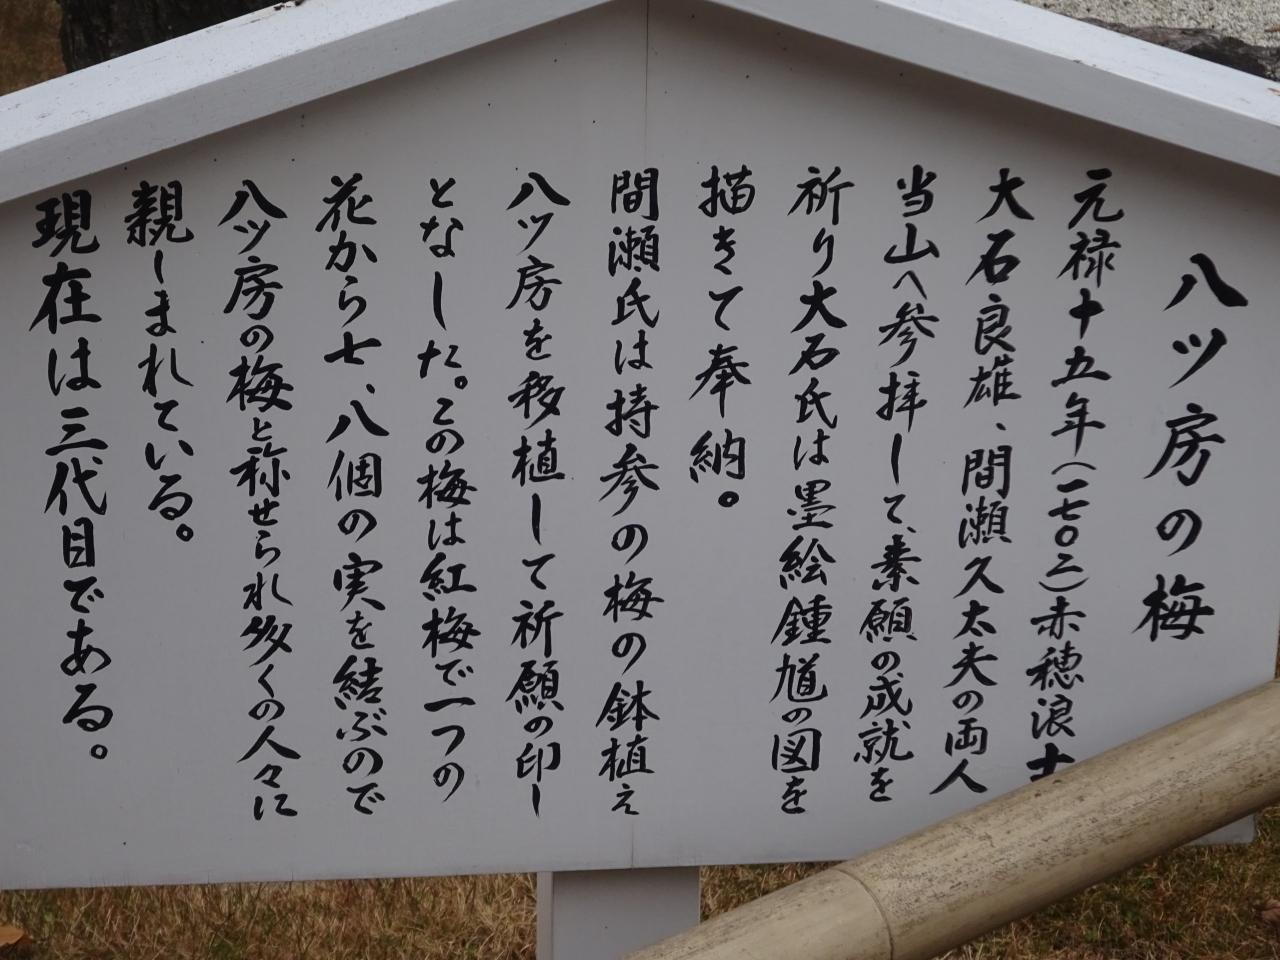 八ツ房の梅
元禄十五年(一七〇二)赤穂浪士
大石良雄、間瀬久太夫の両人
当山へ参拝して、素願の成就を
祈り大石氏は墨絵鍾馗の図を
描きて奉納。
間瀬氏は持参の梅の鉢植え
八ツ房を移植して祈願の印し
となした。この梅は紅梅で一つの
花から七、八個の実を結ぶので
八ツ房の梅と称せられ多くの人々に
親しまれている。
現在は三代目である。